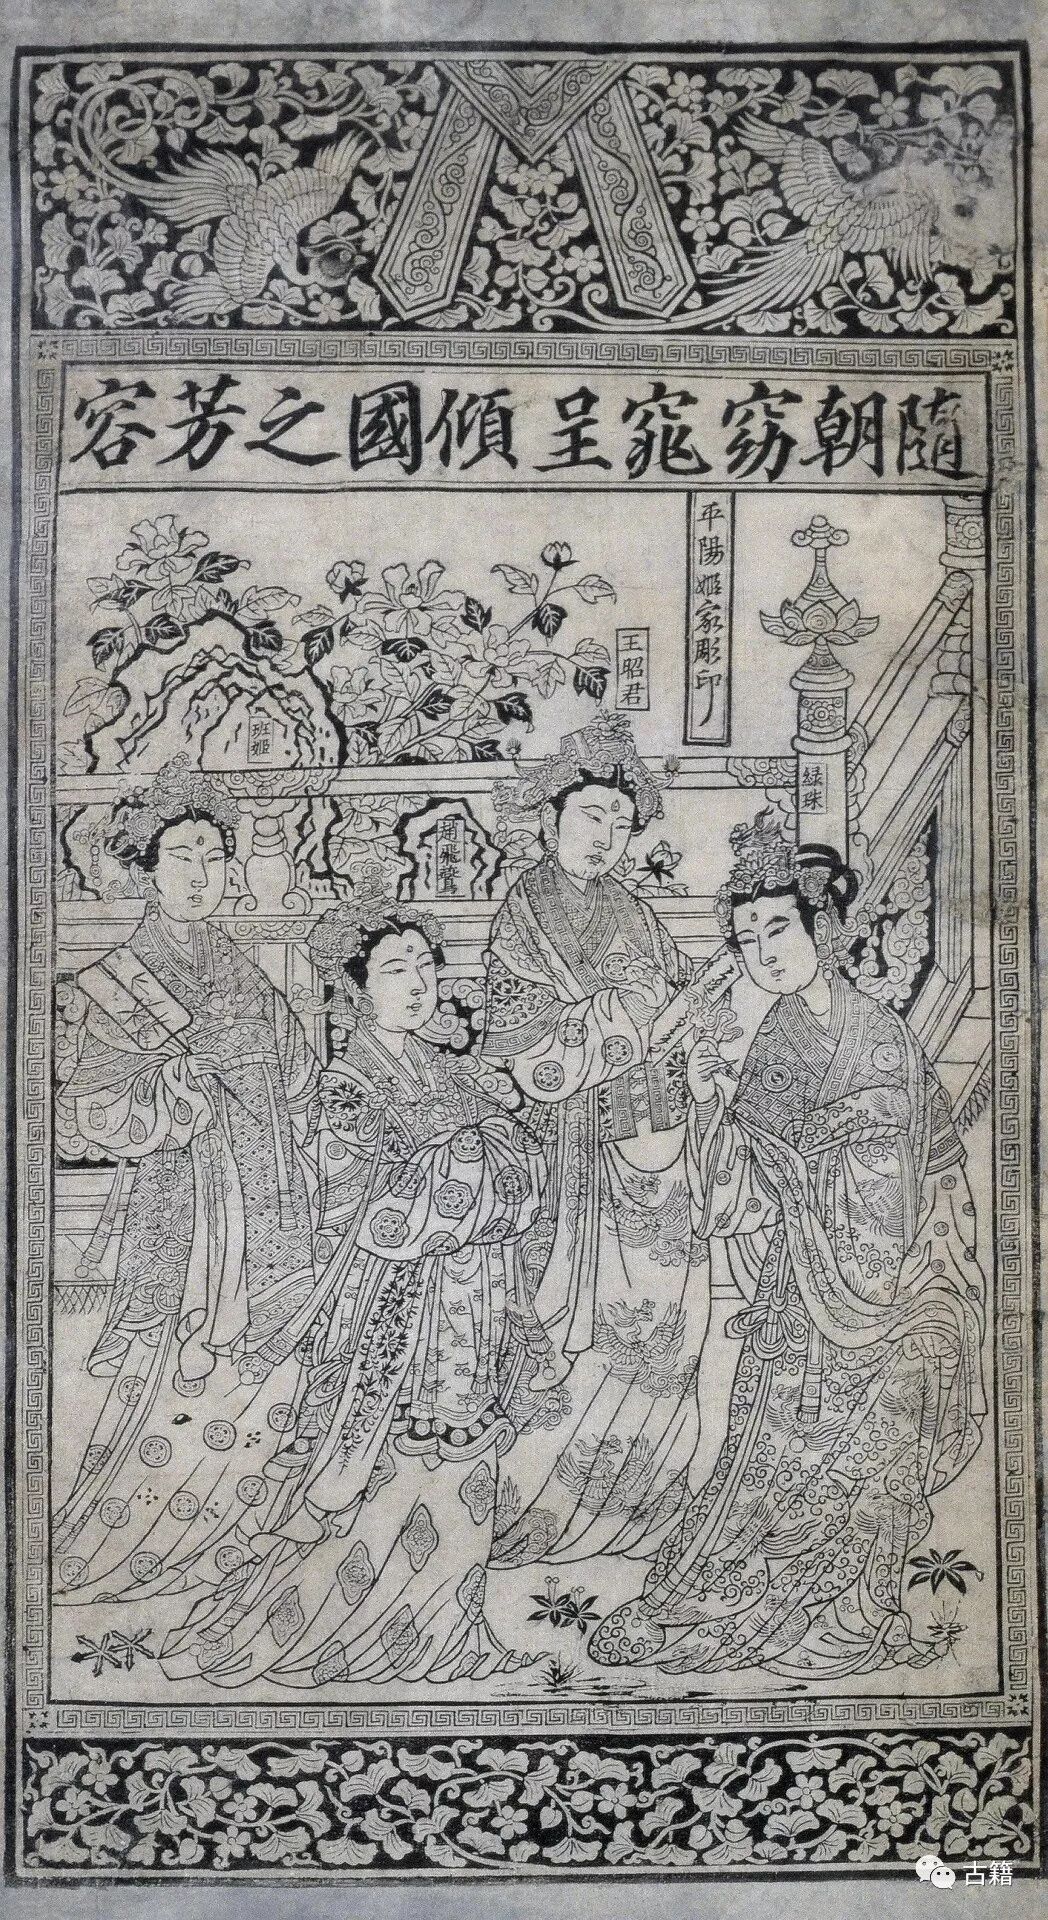 隨朝窈窕呈傾國之芳容
平陽姬家彫印
王昭君
班姬
綠珠
趙飛鷰
古籍